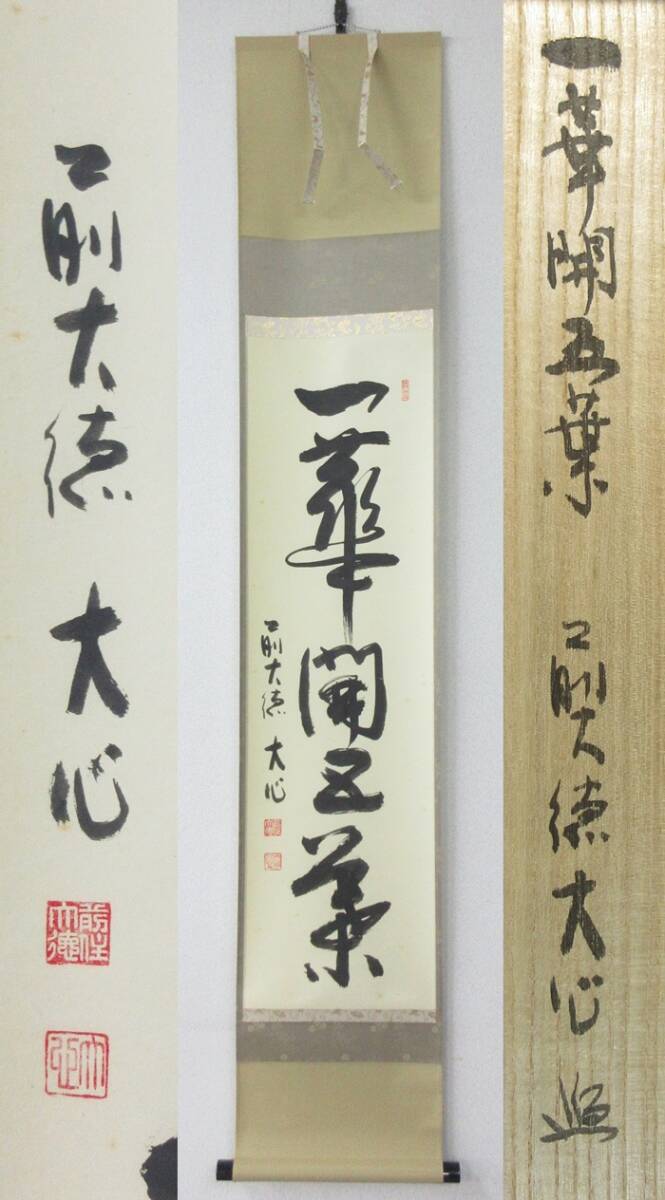 一華開五葉
前大徳 大心
前大徳 大心
前住大徳
大心
一華開五葉 前大徳大心